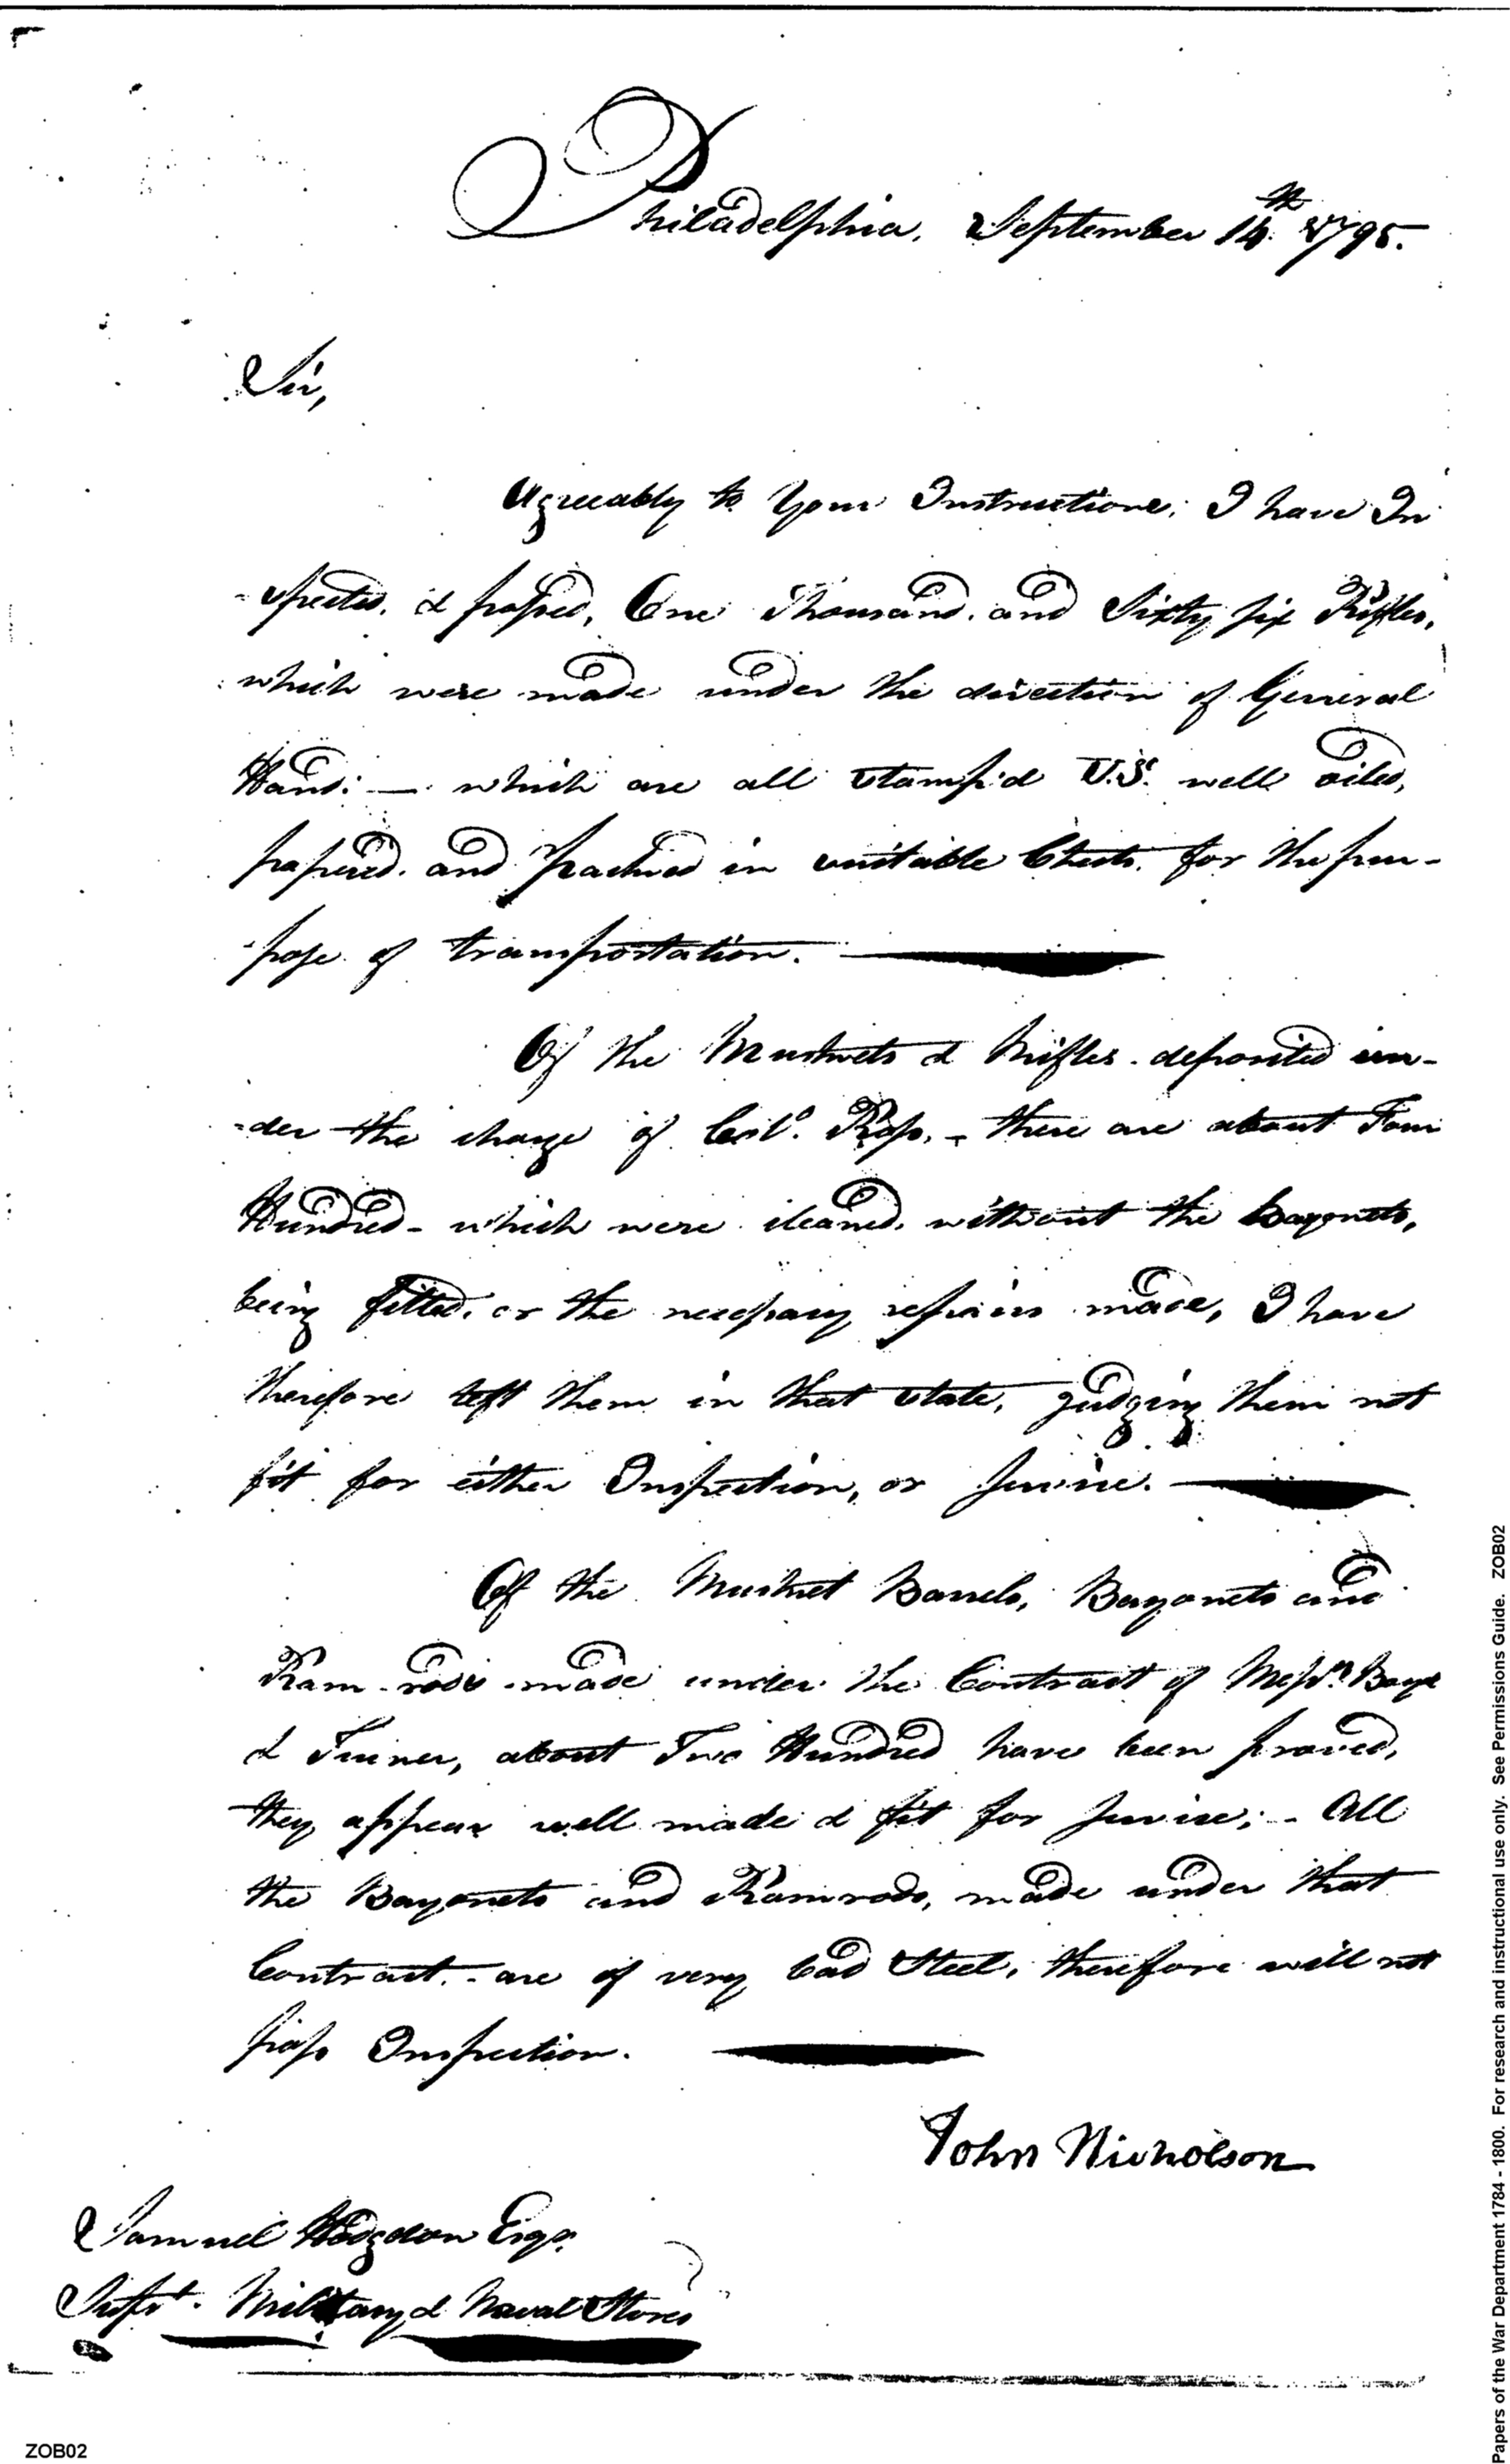 Philadelphia, September 14th 1795.
Sir,
Agreeably to Your Instructions; I have In
-spected, & passed, One Thousand, and Sixty six Rifles,
which were made under the direction of General
Hand: — which are all stamp'd U.S. well oiled,
papered, and packed in suitable Chests, for the pur-
-pose of transportation.
Of the Muskets & Rifles deposited un-
-der the charge of Coll. Rose, - there are about Four
Hundred - which were cleaned, without the bayonets,
being fitted, or the necessary repairs made, I have
therefore left them in that state, judging them not
fit for either Inspection, or Service.
Of the Musket Barrels, Bayonets and
Ram-rods made under the Contract of Messrs.
& Turner, about Two Hundred have been proved,
they appear well made & fit for Service; - All
the Bayonets and Ramrods, made under that
Contract, - are of very bad Steel, therefore will not
pass Inspection.
John Nicholson
Samuel Hodgdon Esqr.
Supt. Military & Naval Stores
Papers of the War Department 1784 - 1800. For research and instructional use only. See Permissions Guide. ZOB02
ZOB02